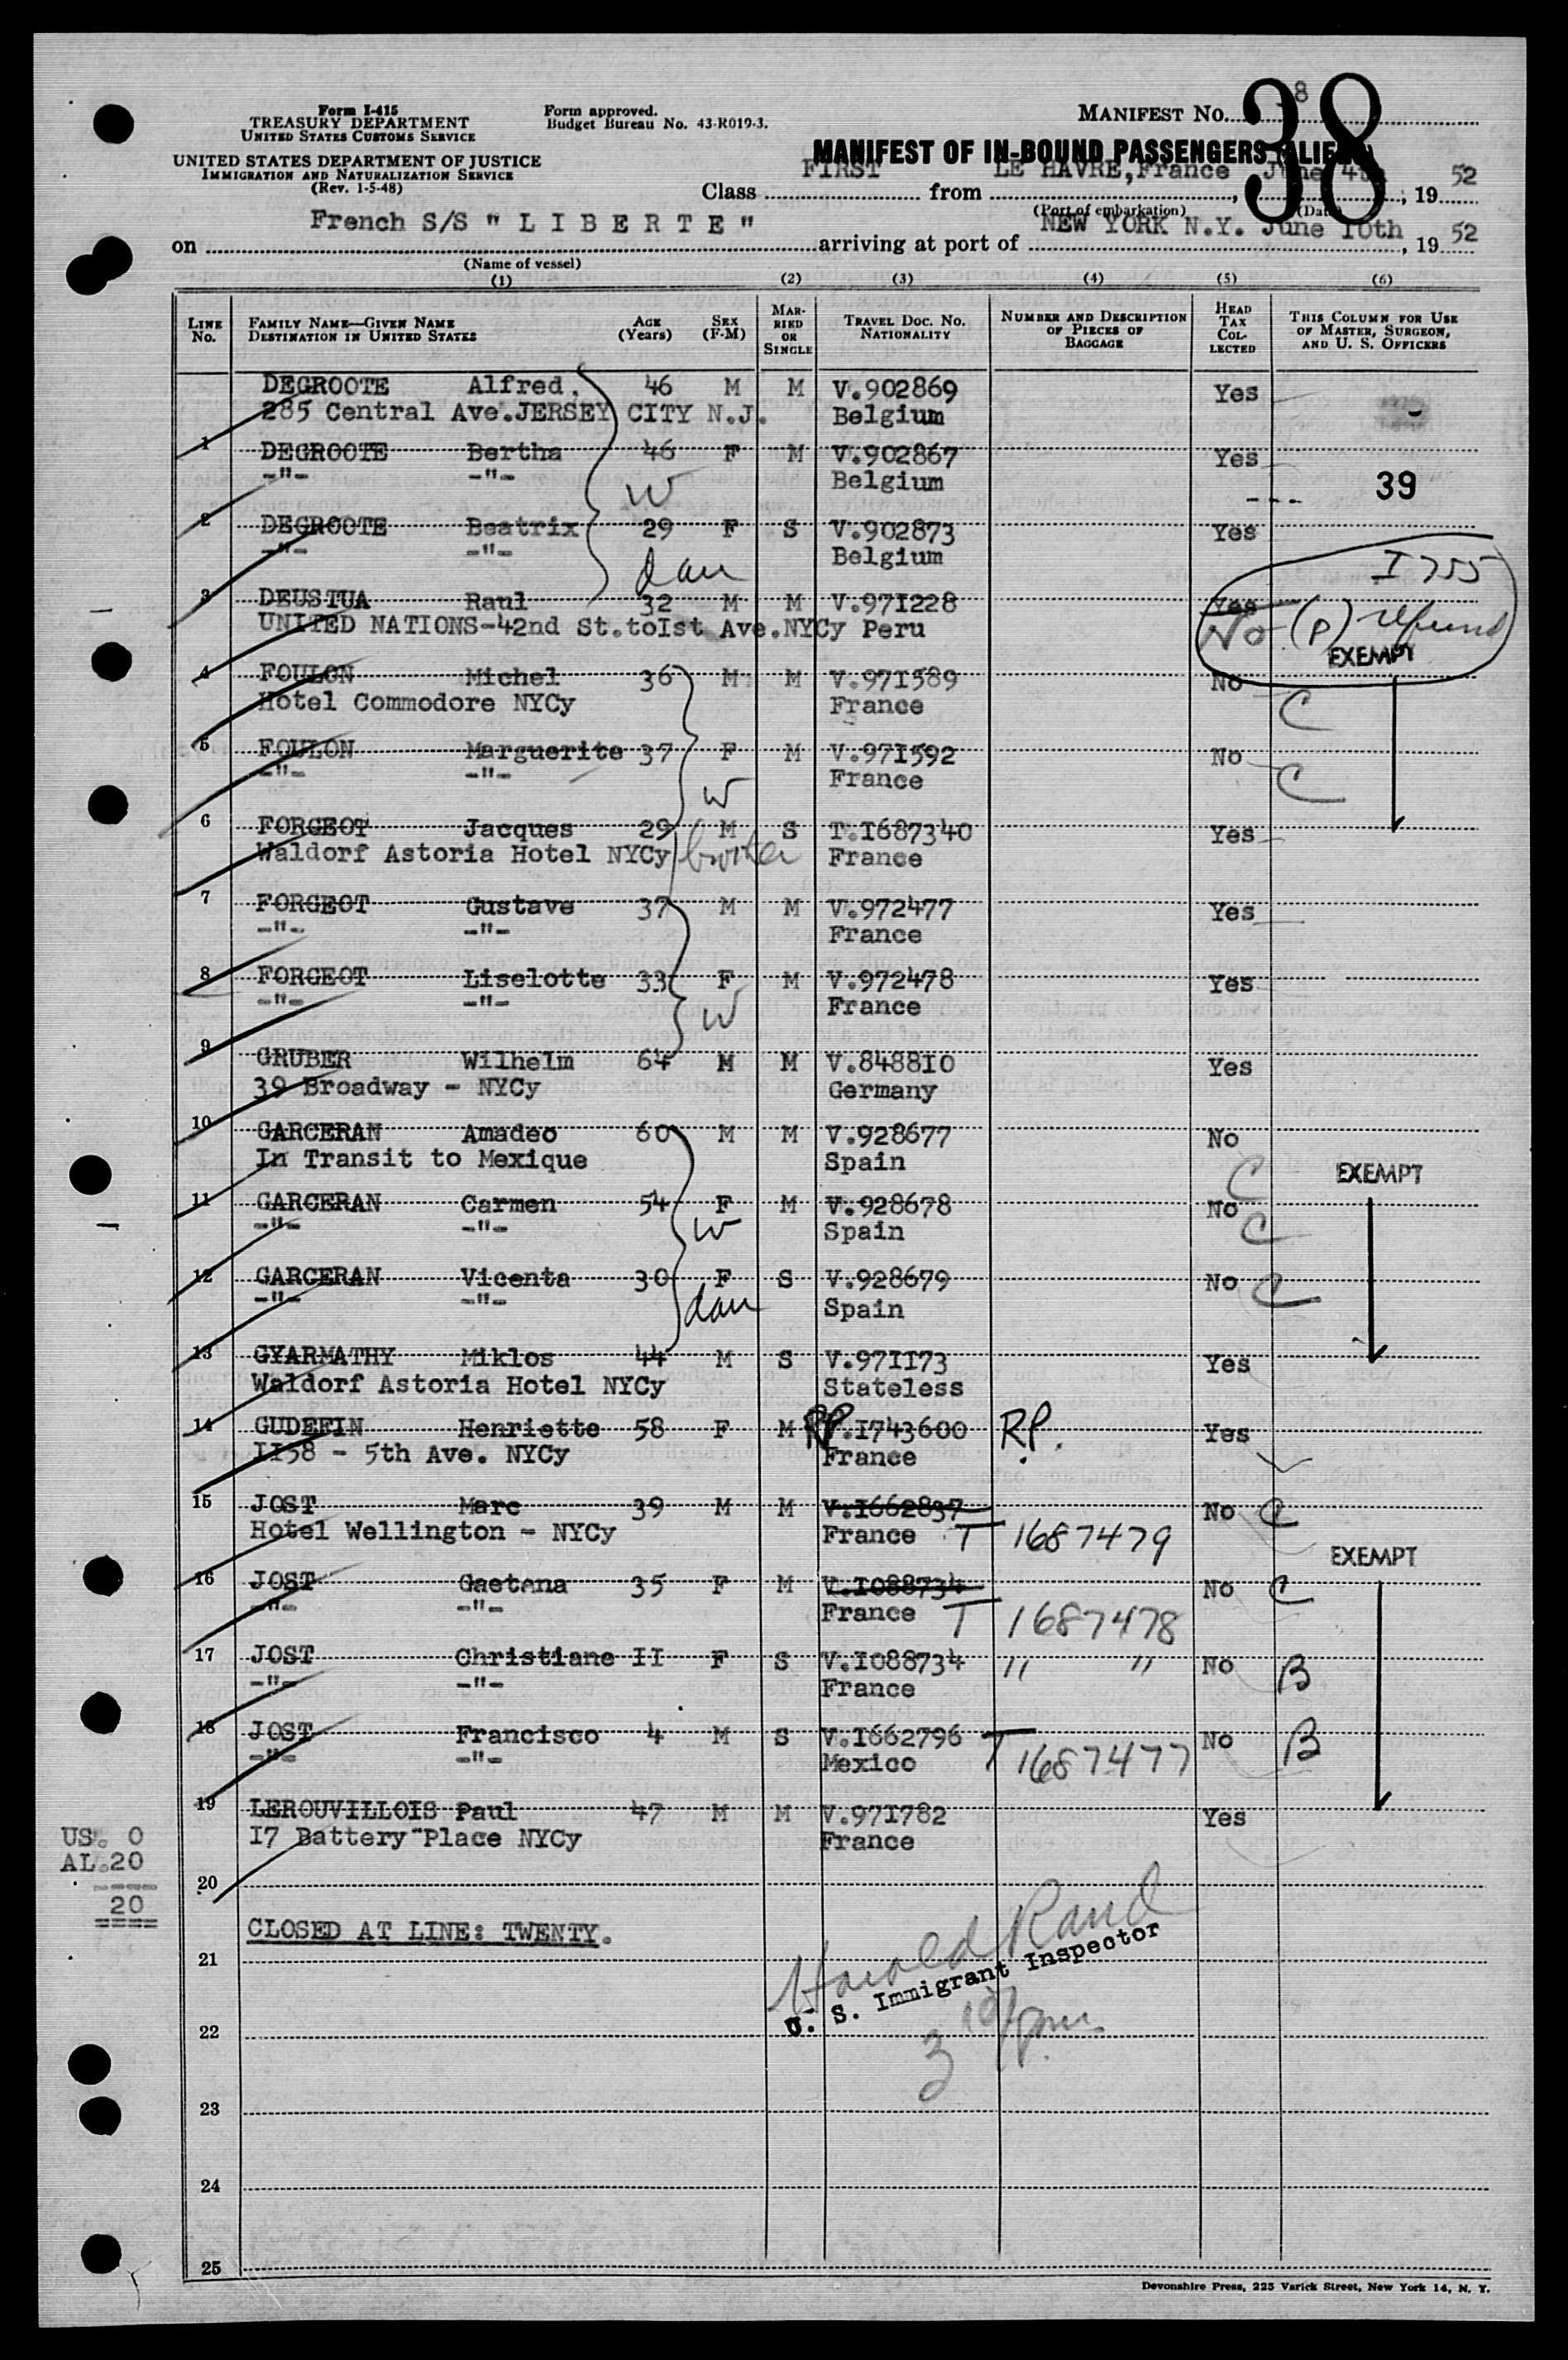 Form I-415
TREASURY DEPARTMENT
UNITED STATES CUSTOMS SERVICE
UNITED STATES DEPARTMENT OF JUSTICE
IMMIGRATION AND NATURALIZATION SERVICE
(Rev. 1-5-48)
Form approved.
Budget Bureau No. 43-R019-3.
MANIFEST No. 38
38
MANIFEST OF IN-BOUND PASSENGERS (ALIENS)
Class FIRST from LE HAVRE, France, June 4th, 1952
(Port of embarkation) (Date)
on French S/S " L I B E R T E " arriving at port of NEW YORK N.Y. June 10th, 1952
(Name of vessel)
(1) (2) (3) (4) (5) (6)
LINE No. FAMILY NAME—GIVEN NAME DESTINATION IN UNITED STATES AGE (Years) SEX (F-M) MARRIED OR SINGLE TRAVEL DOC. NO. NATIONALITY NUMBER AND DESCRIPTION OF PIECES OF BAGGAGE HEAD TAX COLLECTED THIS COLUMN FOR USE OF MASTER, SURGEON, AND U. S. OFFICERS
DEGROOTE Alfred. 46 M M V.902869 Yes -
285 Central Ave.JERSEY CITY N.J. Belgium
1 DEGROOTE Bertha 46 F M V.902867 Yes
-"- -"- W Belgium --- 39
2 DEGROOTE Beatrix 29 F S V.902873 Yes
-"- -"- dau Belgium I 755
3 DEUSTUA Raul 32 M M V.971228 Yes
UNITED NATIONS-42nd St.toIst Ave.NYCy Peru No (P) refund
EXEMPT
4 FOULON Michel 36 M M V.971589 No C
Hotel Commodore NYCy France
5 FOULON Marguerite 37 F M V.971592 No C
-"- -"- W France
6 FORGEOT Jacques 29 M S T.I687340 Yes
Waldorf Astoria Hotel NYCy brother France
7 FORGEOT Gustave 37 M M V.972477 Yes
-"- -"- France
8 FORGEOT Liselotte 33 F M V.972478 Yes
-"- -"- W France
9 GRUBER Wilhelm 64 M M V.8488I0 Yes
39 Broadway - NYCy Germany
10 GARCERAN Amadeo 60 M M V.928677 No C
In Transit to Mexique Spain EXEMPT
11 GARCERAN Carmen 54 F M V.928678 No C
-"- -"- W Spain
12 GARCERAN Vicenta 30 F S V.928679 No C
-"- -"- dau Spain
13 GYARMATHY Miklos 44 M S V.97II73 Yes
Waldorf Astoria Hotel NYCy Stateless
14 GUDEFIN Henriette 58 F M RP.I743600 RP. Yes
II58 - 5th Ave. NYCy France
15 JOST Marc 39 M M V.I662837 No C
Hotel Wellington - NYCy France T 1687479 EXEMPT
16 JOST Gaetana 35 F M V.I088734 No C
-"- -"- France T 1687478
17 JOST Christiane II F S V.I088734 " " No B
-"- -"- France
18 JOST Francisco 4 M S V.I662796 No B
-"- -"- Mexico T 1687477
19 LEROUVILLOIS Paul 47 M M V.971782 Yes
I7 Battery Place NYCy France
US. 0
AL.20
20
20
CLOSED AT LINE: TWENTY.
21
Harold Rand
U. S. Immigrant Inspector
22
3 pm
23
24
25
Devonshire Press, 225 Varick Street, New York 14, N. Y.